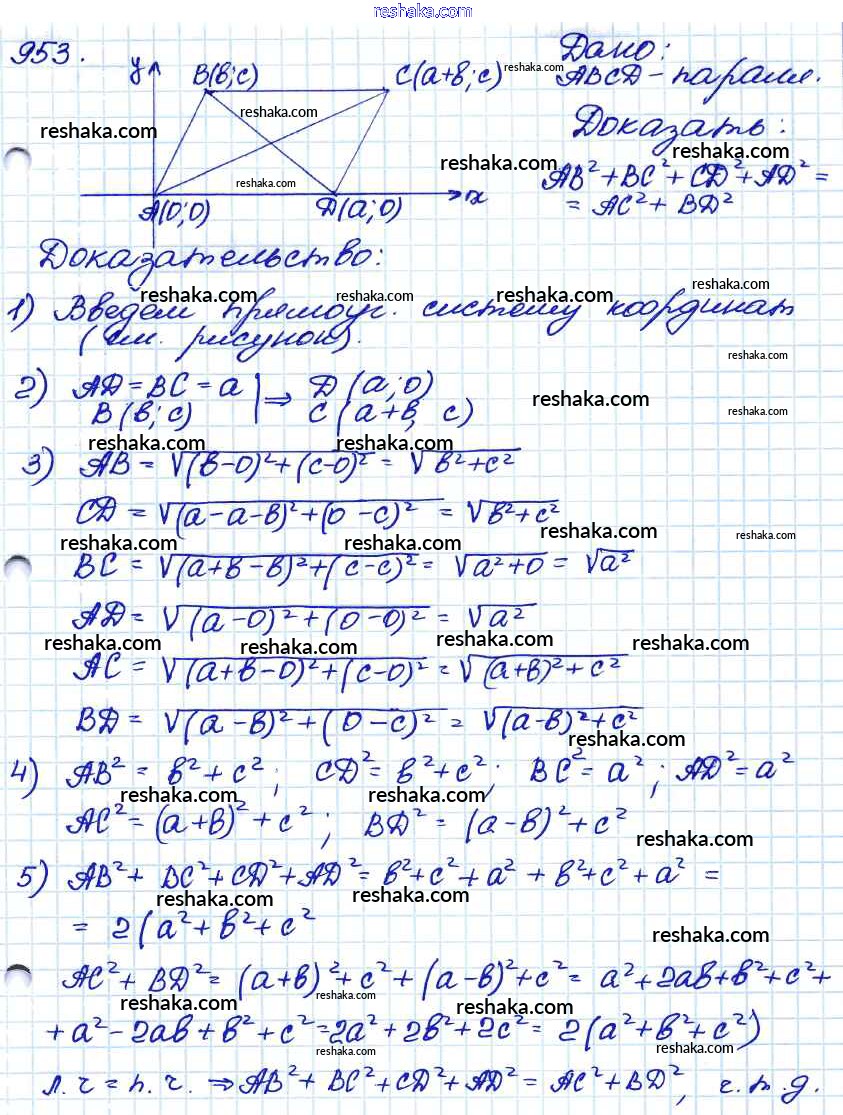 reshaka.com
953.
Дано:
ABCD - паралл.
Доказать:
AB² + BC² + CD² + AD² =
= AC² + BD²
y
B(b; c)
C(a+b; c)
A(0; 0)
D(a; 0)
x
Доказательство:
1) Введём прямоуг. систему координат
(см. рисунок).
2) AD = BC = a | ⇒ D (a; 0)
B (b; c) | C (a+b, c)
3) AB = √((b-0)² + (c-0)²) = √(b² + c²)
CD = √((a-a-b)² + (0-c)²) = √(b² + c²)
BC = √((a+b-b)² + (c-c)²) = √(a² + 0) = √(a²)
AD = √((a-0)² + (0-0)²) = √(a²)
AC = √((a+b-0)² + (c-0)²) = √((a+b)² + c²)
BD = √((a-b)² + (0-c)²) = √((a-b)² + c²)
4) AB² = b² + c²; CD² = b² + c²; BC² = a²; AD² = a²
AC² = (a+b)² + c²; BD² = (a-b)² + c²
5) AB² + BC² + CD² + AD² = b² + c² + a² + b² + c² + a² =
= 2(a² + b² + c²
AC² + BD² = (a+b)² + c² + (a-b)² + c² = a² + 2ab + b² + c² +
+ a² - 2ab + b² + c² = 2a² + 2b² + 2c² = 2(a² + b² + c²)
л. ч = п. ч. ⇒ AB² + BC² + CD² + AD² = AC² + BD², ч.т.д.